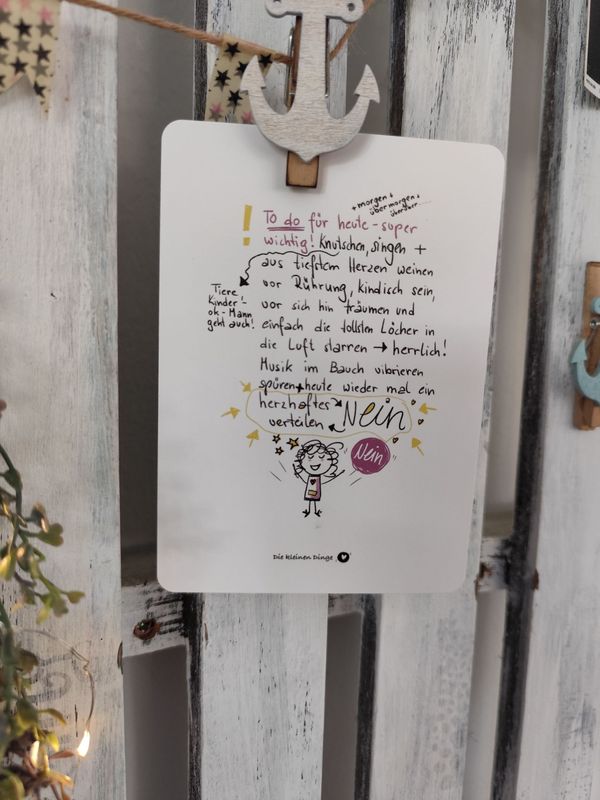 + morgen +
übermorgen +
überüber...
! To do für heute - super
wichtig! Knutschen, singen +
aus tiefstem Herzen weinen
vor Rührung, kindisch sein,
Tiere
Kinder!-
ok - Mann
geht auch!
vor sich hin träumen und
einfach die tollsten Löcher in
die Luft starren → herrlich!
Musik im Bauch vibrieren
spüren + heute wieder mal ein
herzhaftes Nein
verteilen
Nein
Die kleinen Dinge